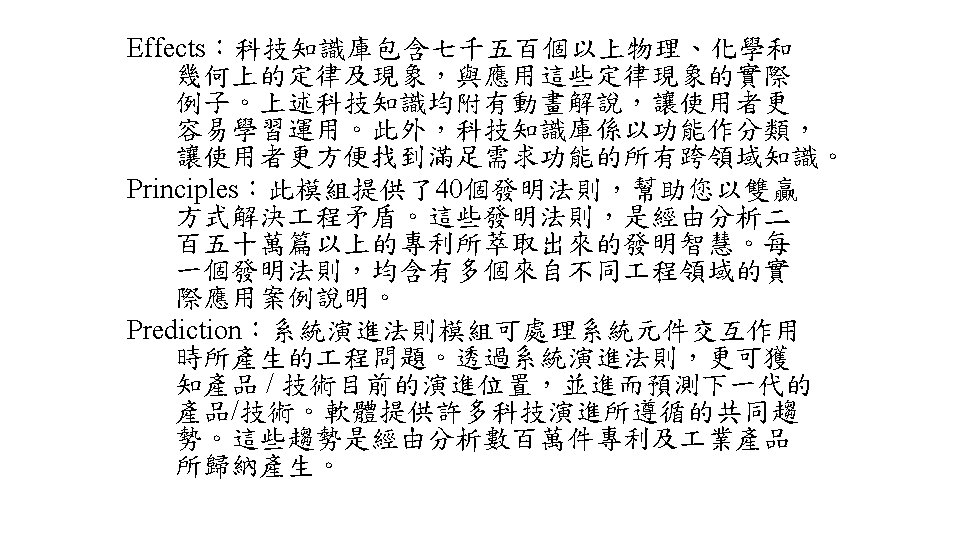 Effects：科技知識庫包含七千五百個以上物理、化學和
幾何上的定律及現象，與應用這些定律現象的實際
例子。上述科技知識均附有動畫解說，讓使用者更
容易學習運用。此外，科技知識庫係以功能作分類，
讓使用者更方便找到滿足需求功能的所有跨領域知識。
Principles：此模組提供了40個發明法則，幫助您以雙贏
方式解決工程矛盾。這些發明法則，是經由分析二
百五十萬篇以上的專利所萃取出來的發明智慧。每
一個發明法則，均含有多個來自不同工程領域的實
際應用案例說明。
Prediction：系統演進法則模組可處理系統元件交互作用
時所產生的工程問題。透過系統演進法則，更可獲
知產品 / 技術目前的演進位置，並進而預測下一代的
產品/技術。軟體提供許多科技演進所遵循的共同趨
勢。這些趨勢是經由分析數百萬件專利及工業產品
所歸納產生。